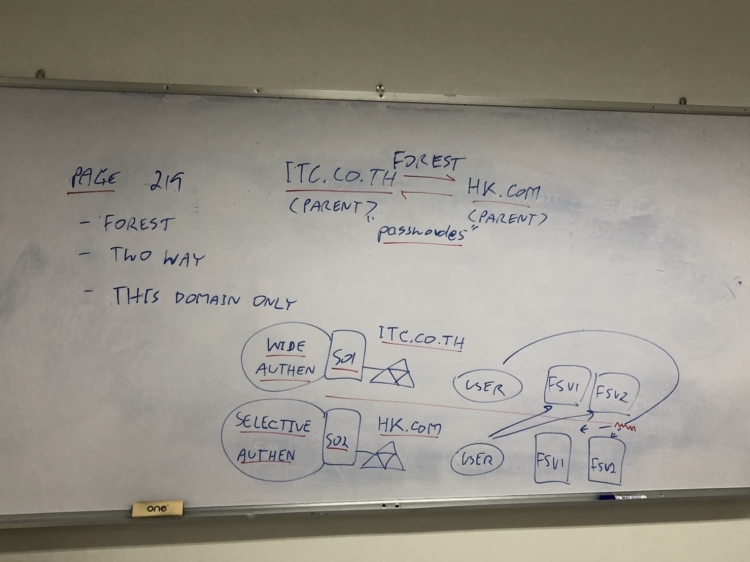 PAGE 219
- FOREST
- TWO WAY
- THIS DOMAIN ONLY
FOREST
ITC.CO.TH
HK.COM
(PARENT)
(PARENT)
"password@5"
WIDE
AUTHEN
S01
ITC.CO.TH
USER
FSV1
FSV2
SELECTIVE
AUTHEN
S02
HK.COM
USER
FSV1
FSV2
one